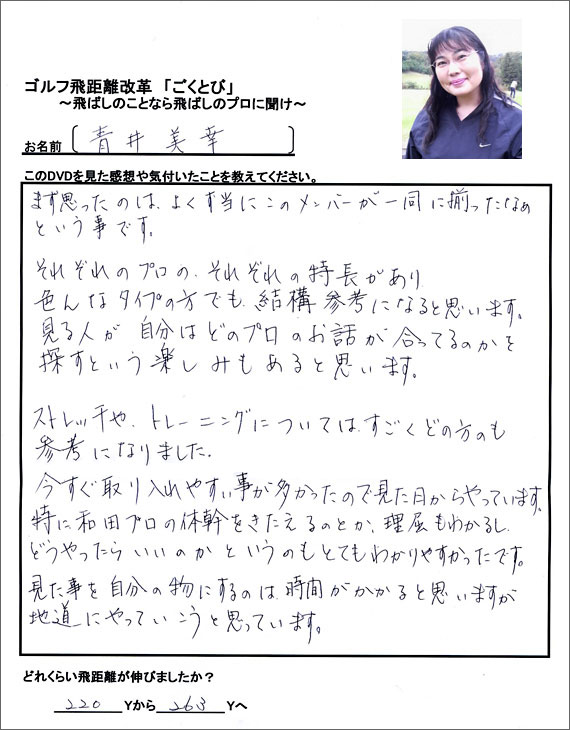 ゴルフ飛距離改革 「ごくとび」
～飛ばしのことなら飛ばしのプロに聞け～
お名前 青井 美幸
このDVDを見た感想や気付いたことを教えてください。
まず思ったのは、よくす当にこのメンバーが一同に揃ったなぁ
という事です。
それぞれのプロの、それぞれの特長があり
色んなタイプの方でも、結構参考になると思います。
見る人が自分はどのプロのお話が合ってるのかを
探すという楽しみもあると思います。
ストレッチや、トレーニングについては、すごくどの方のも
参考になりました。
今すぐ取り入れやすい事が多かったので見た日からやっています。
特に和田プロの体幹をきたえるのとか、理屈もわかるし、
どうやったらいいのかというのもとてもわかりやすかったです。
見た事を自分の物にするのは、時間がかかると思いますが
地道にやっていこうと思っています。
どれくらい飛距離が伸びましたか？
220 Yから 263 Yへ